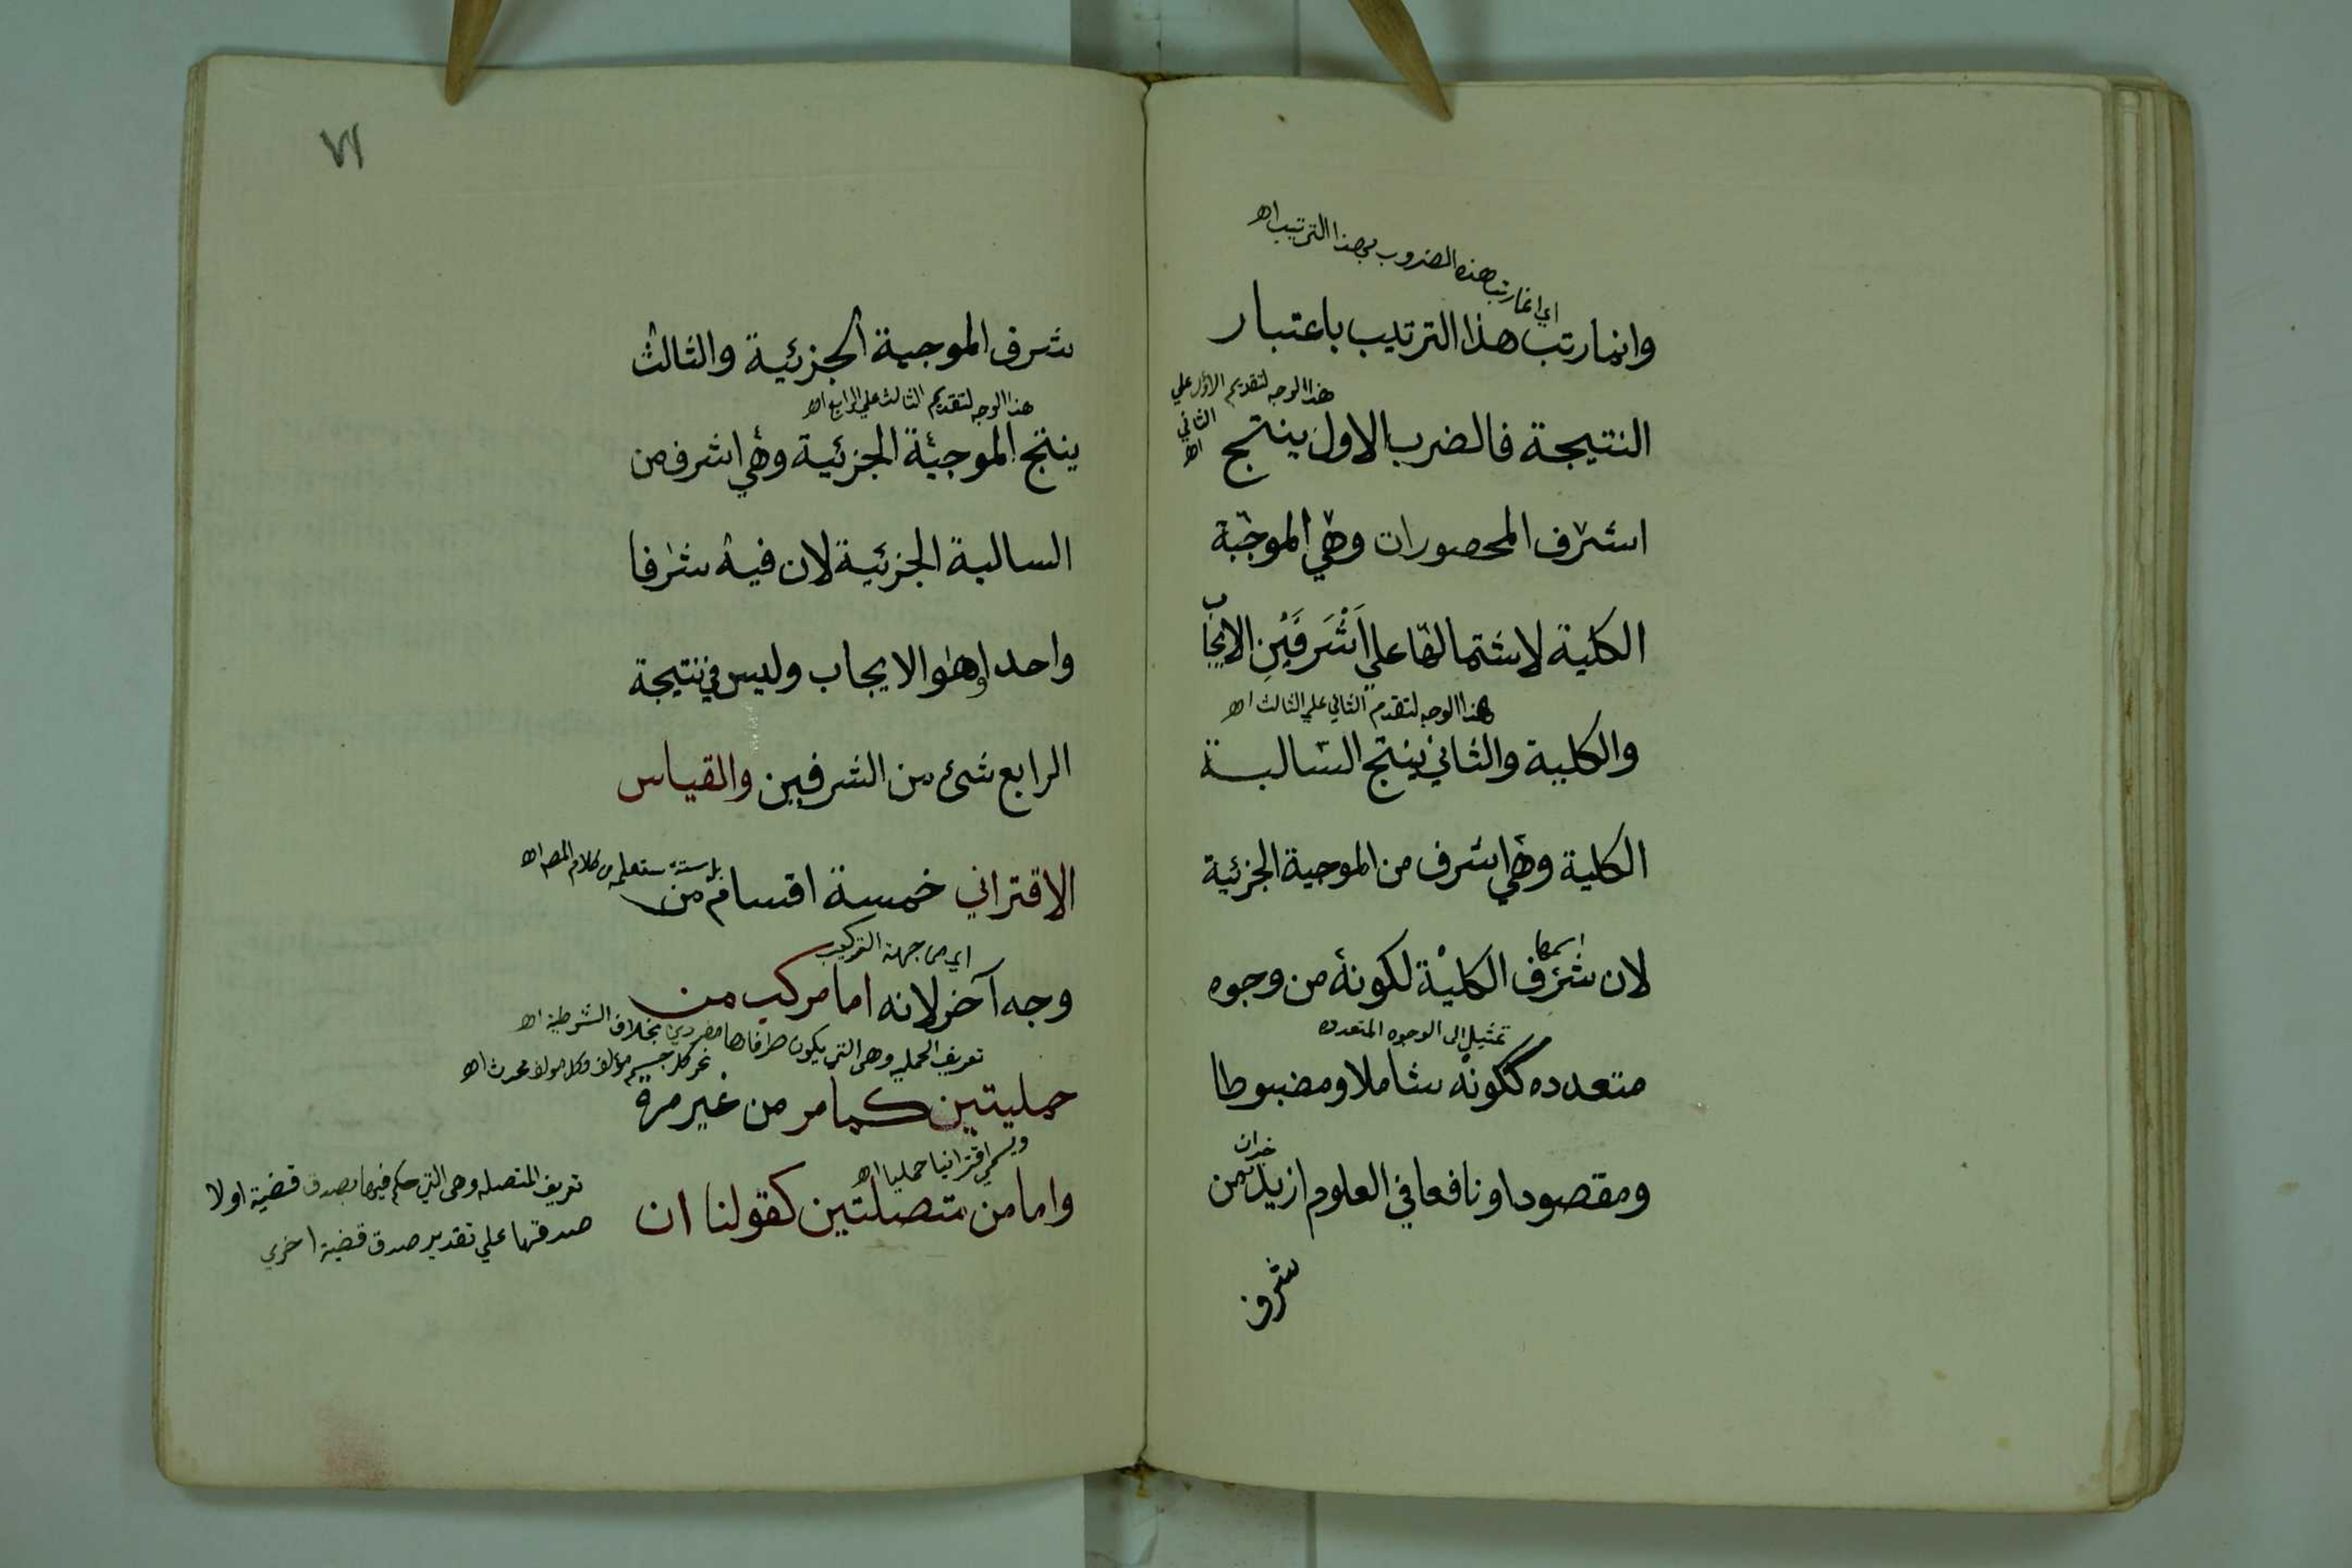 اي انما رتب هذه الضروب بهذا الترتيب اه
وانما رتب هذا الترتيب باعتبار
هذا الوجه لتقديم الاول علي
الثاني
اه
النتيجة فالضرب الاول ينتج
اشرف المحصورات وهي الموجبة
الكلية لاشتمالها علي اَشْرَفَيْنِ الايجاب
هذا الوجه لتقدم الثاني علي الثالث اه
والكلية والثاني ينتج السالبة
الكلية وهي اشرف من الموجبة الجزئية
اسمها
لان شرف الكلية لكونه من وجوه
تمثيل الى الوجوه المتعدده
متعدده ككونه شاملا ومضبوطا
خبران
ومقصودا ونافعا في العلوم ازيد من
شرف
٧١
شرف الموجبة الجزئية والثالث
هذا الوجه لتقديم الثالث علي الرابع اه
ينتج الموجبة الجزئية وهي اشرف من
السالبة الجزئية لان فيه شرفا
واحدا وهو الايجاب وليس في نتيجة
الرابع شئ من الشرفين والقياس
بل ستة ستعلمه من كلام المصه اه
الاقتراني خمسة اقسام من
اي من جهة التركيب
وجه آخر لانه اما مركب من
تعريف الحمليه وهى التي يكون طرفاها مفردين بخلاف الشرطية اه
نحو كل جسم مؤلف وكل مؤلف محدث اه
حمليتين كما مر من غير مرة
ويسمي اقترانيا حمليا اه
واما من متصلتين كقولنا ان
تعريف المتصله وهى التي حكم فيها بصدق قضية اولا
صدقها علي تقدير صدق قضية اخري